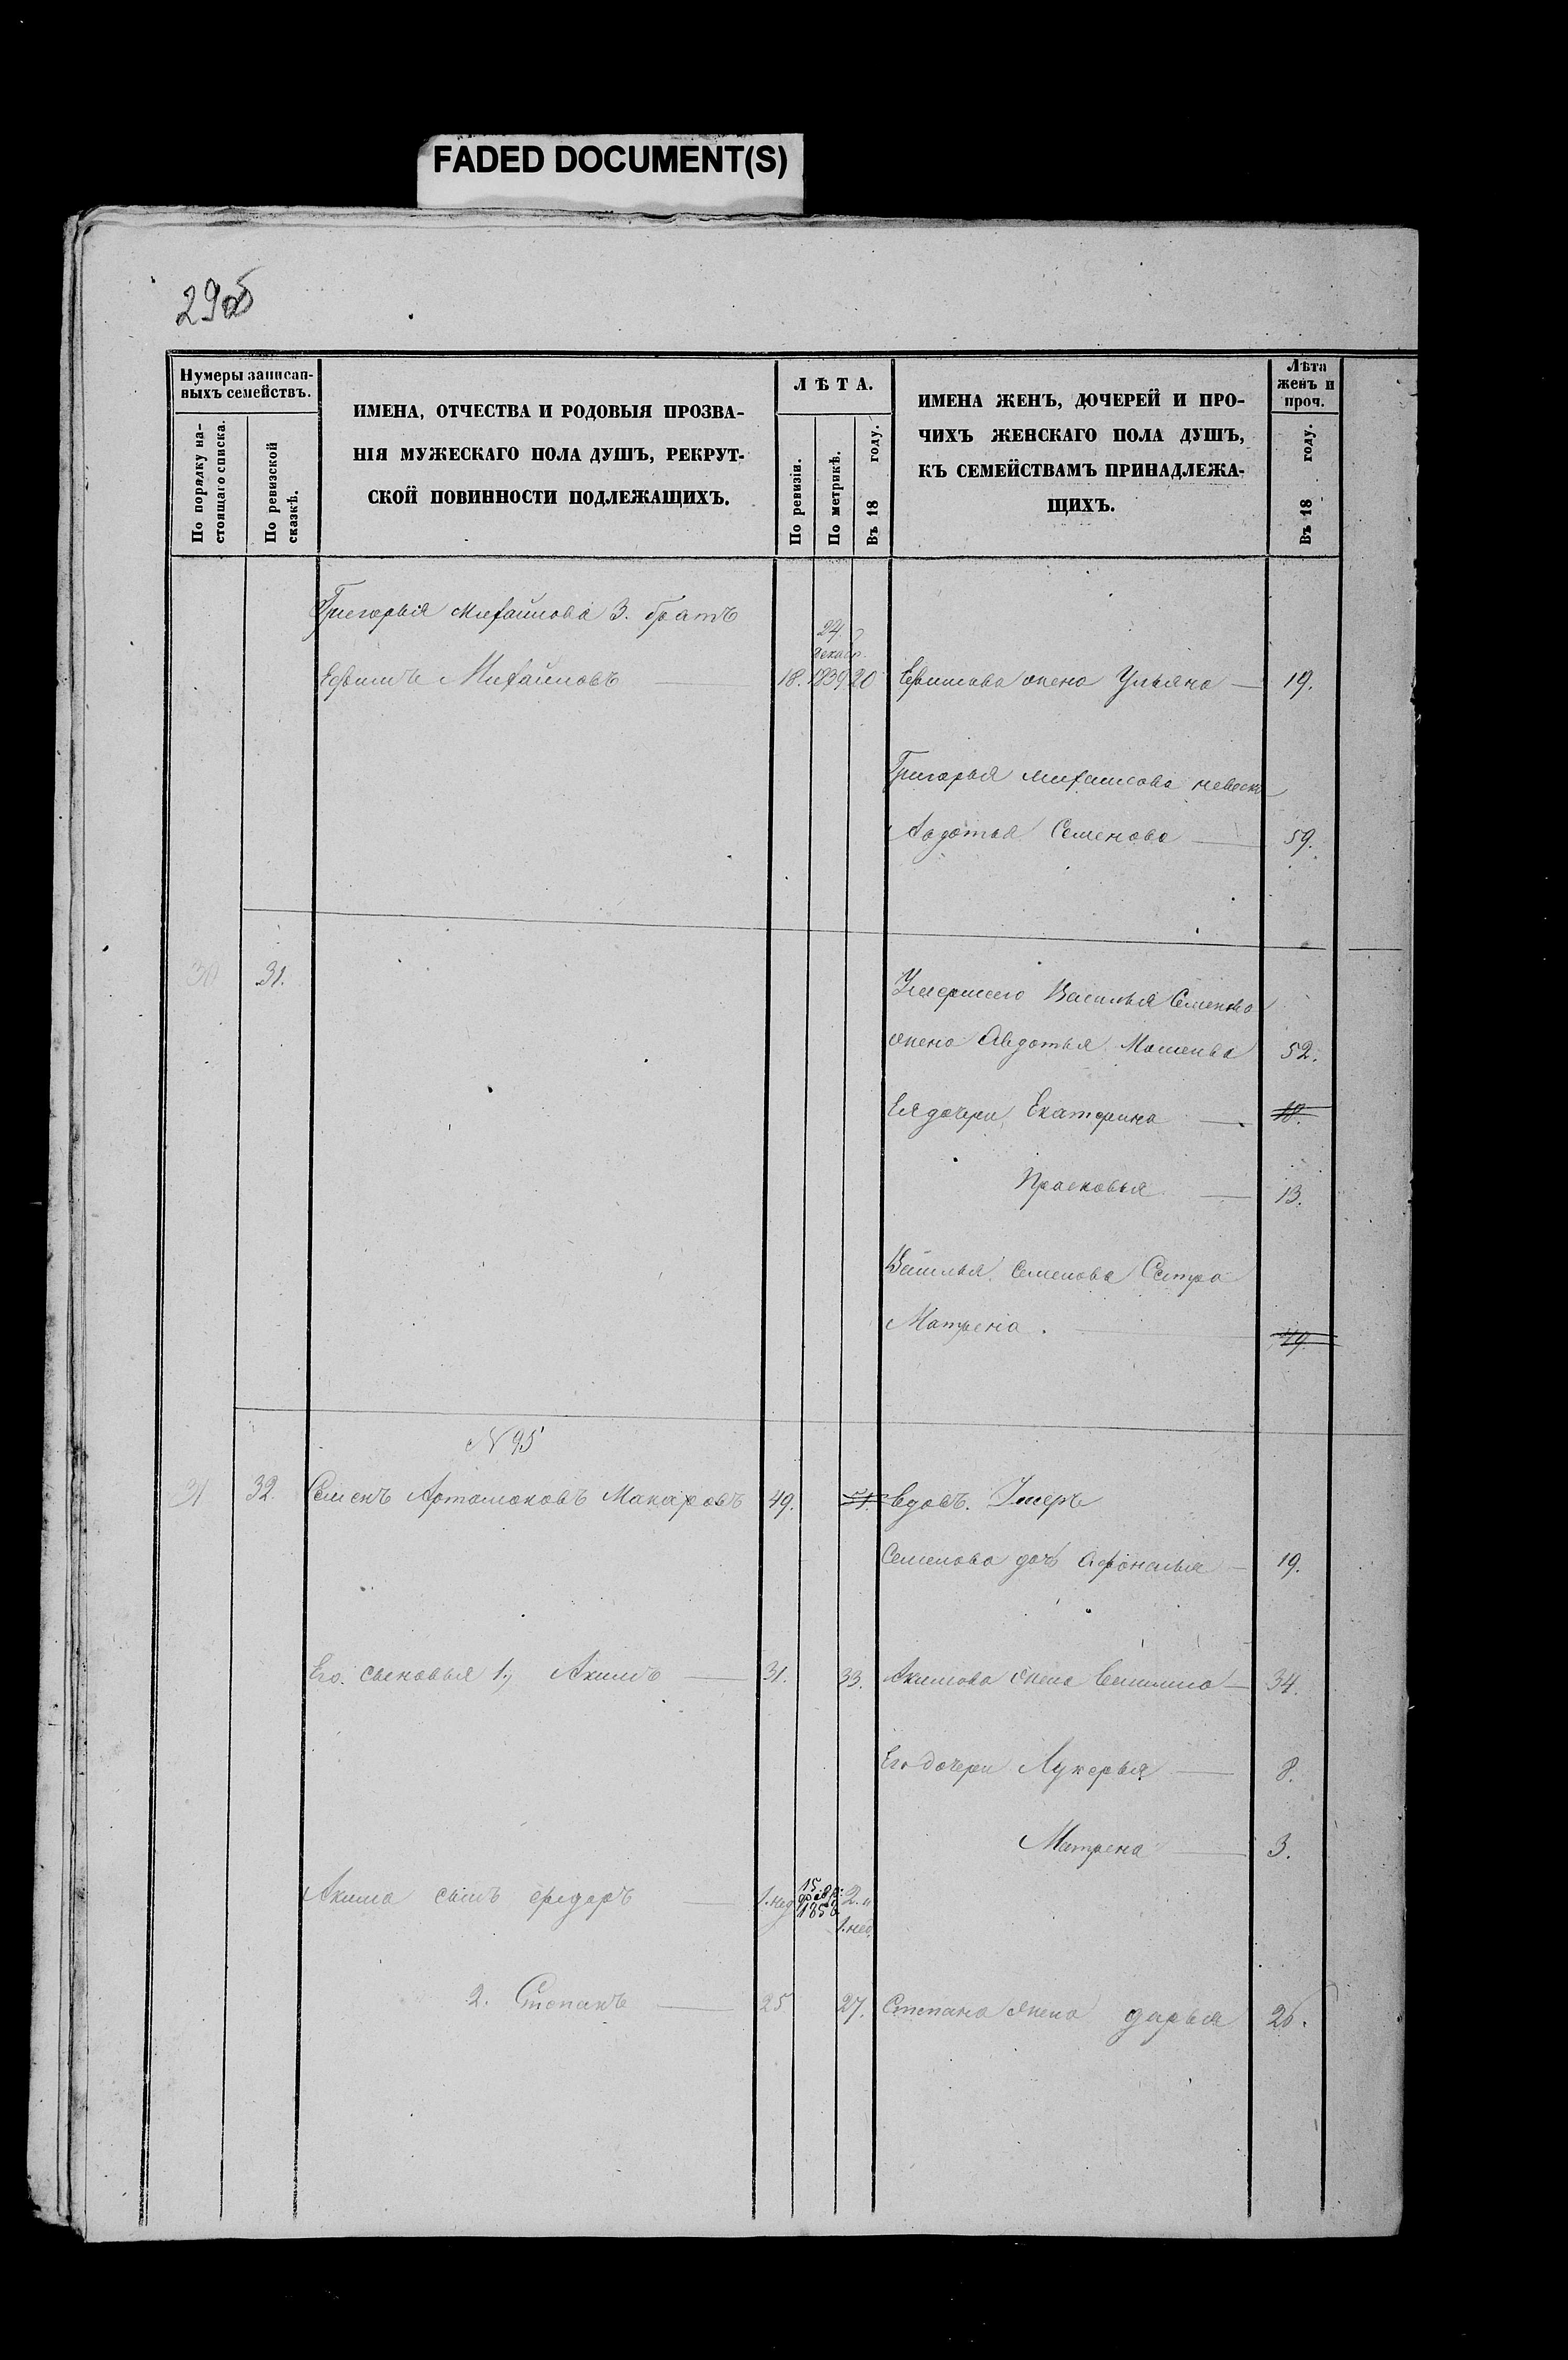 FADED DOCUMENT(S)
29об
Нумеры записан-
ныхъ семействъ.
По порядку на-
стоящаго списка.
По ревизской
сказкѣ.
ИМЕНА, ОТЧЕСТВА И РОДОВЫЯ ПРОЗВА-
НІЯ МУЖЕСКАГО ПОЛА ДУШЪ, РЕКРУТ-
СКОЙ ПОВИННОСТИ ПОДЛЕЖАЩИХЪ.
ЛѢТА.
По ревизіи.
По метрикѣ.
Въ 18 году.
ИМЕНА ЖЕНЪ, ДОЧЕРЕЙ И ПРО-
ЧИХЪ ЖЕНСКАГО ПОЛА ДУШЪ,
КЪ СЕМЕЙСТВАМЪ ПРИНАДЛЕЖА-
ЩИХЪ.
Лѣта
женъ и
проч.
Въ 18 году.
Григорья Михайлова 3. братъ
24
декабр.
Ефимъ Михайловъ 18. 1839 20 Ефимова жена Ульяна 19.
Григорья Михайлова невеска
Авдотья Семенова 59.
30 31. Умершего Василья Семенова
жена Авдотья 52.
Ея дочери, Екатерина 18.
Прасковья 13.
Василья Семенова Сестра
Матрена. 49.
N 95
31 32. Семенъ Артамоновъ Макаровъ 49. 51. вдовъ. Умеръ
Семенова дочь 19.
Его сыновья 1, Акимъ 31. 33. Акимова жена 34.
Его дочери Лукерья 8.
Матрена 3.
Акима сынъ Федоръ 1. нед. 15 февр. 1858 2. и
1. нед.
2. Степанъ 25 27. Степана жена дарья 26.